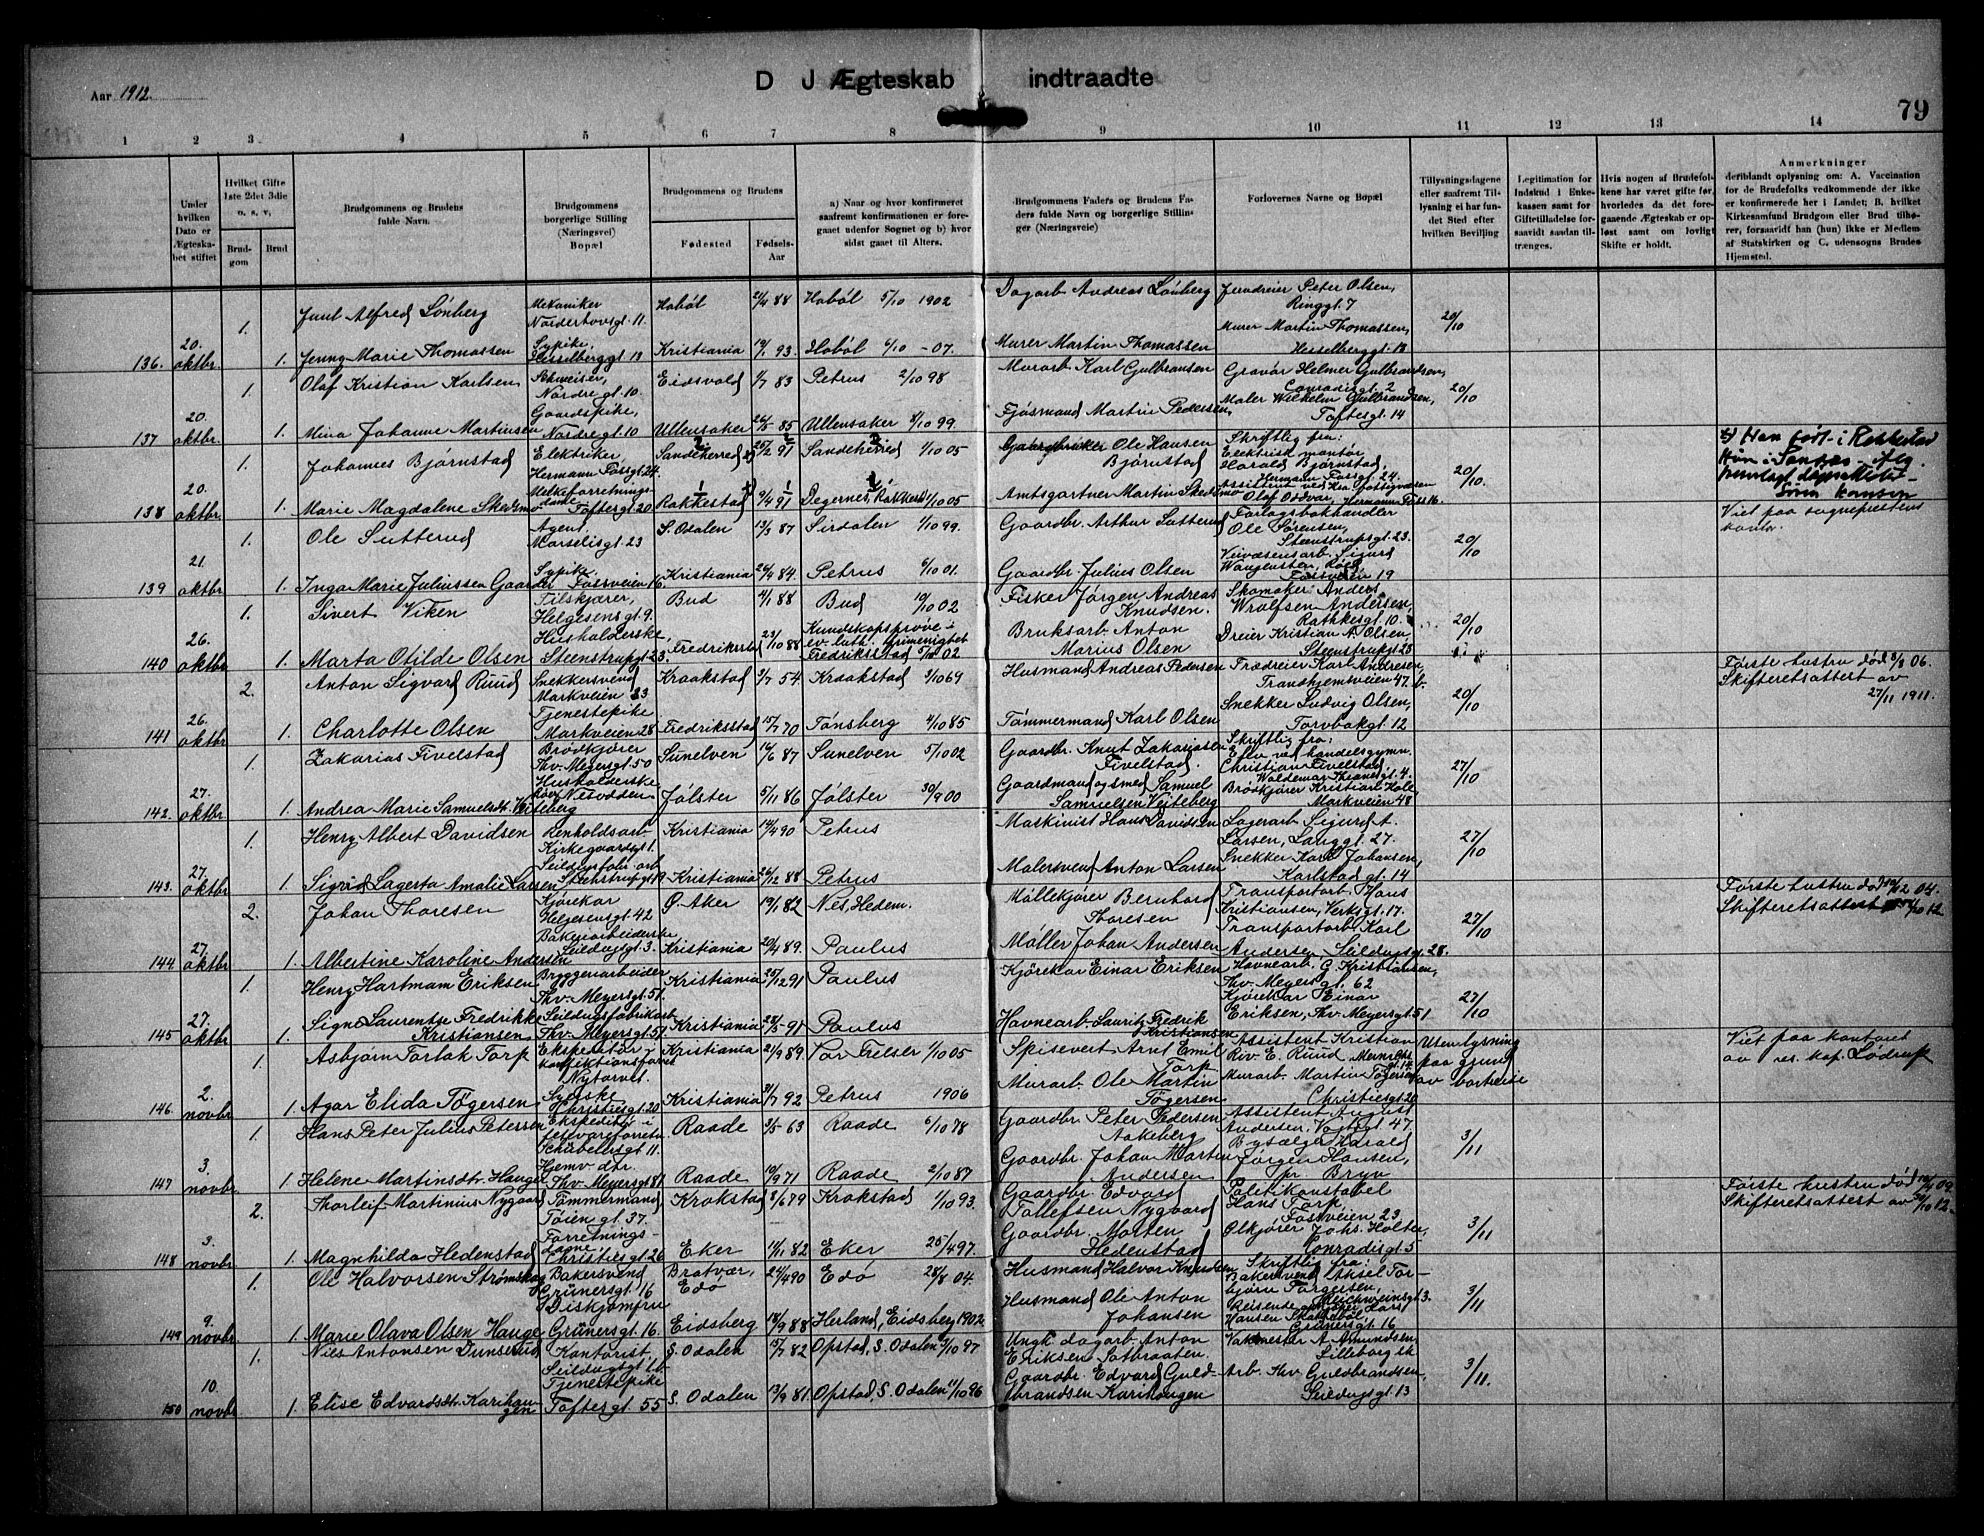 Aar 1912
D J Ægteskab indtraadte
79
1 2 3 4 5 6 7 8 9 10 11 12 13 14
Under hvilken Dato er Ægteskabet stiftet
Hvilket Gifte 1ste 2det 3die o. s. v,
Brudgom
Brud
Brudgommens og Brudens fulde Navn.
Brudgommens borgerlige Stilling (Næringsvei) Bopæl
Brudgommens og Brudens
Fødested
Fødsels-Aar
a) Naar og hvor konfirmeret saafremt konfirmationen er foregaaet udenfor Sognet og b) hvor sidst gaaet til Alters.
Brudgommens Faders og Brudens Faders fulde Navn og borgerlige Stillinger (Næringsveie)
Forlovernes Navne og Bopæl
Tillysningsdagene eller saafremt Tillysning ei har fundet Sted efter hvilken Bevilling
Legitimation for Indskud i Enkekassen samt for Giftetilladelse forsaavidt saadan tiltrænges.
Hvis nogen af Brudefolkene har været gifte før, hvorledes da det foregaaende Ægteskab er opløst samt om lovligt Skifte er holdt.
Anmerkninger
deriblandt oplysning om: A. Vaccination for de Brudefolks vedkommende der ikke er konfirmerede her i Landet; B. hvilket Kirkesamfund Brudgom eller Brud tilhører, forsaavidt han (hun) ikke er Medlem af Statskirken og C. udensogns Brudes Hjemsted.
1. Juul Alfred Lönberg Mekaniker Norderhovsgt. 11. Haböl 21/4 88 Haböl 5/10 1902 Dagarb. Andreas Lönberg Jerndreier Peter Olsen, Ringgt. 7 20/10
136. 20. oktbr 1. Jenny Marie Thomassen Sypike, Hesselberggt. 13 Kristiania 19/1 93. Haböl 6/10 -07. Murer Martin Thomassen Murer Martin Thomassen, Hesselberggt. 13
1. Olaf Kristian Karlsen Schweiser, Nordre gt. 10. Eidsvold 1/7 83 Petrus 2/10 98 Murarb. Karl Gulbransen Gravör Helmer Gulbrandsen, Conradisgt. 2 20/10
137 20. oktbr. 1. Mina Johanne Martinsen Gaardspike, Nordre gt. 10 Ullensaker 26/5 85 Ullensaker 8/10 99. Fjösmand Martin Pedersen, Maler Wilhelm Gulbrandsen, Toftesgt. 14
1. Johannes Bjørnstad Elektriker, Hermann Fossgt. 24. Sandeherred 25/2 91 Sandeherred 1/10 05 Gaardbruker Ole Hansen Bjørnstad Skriftlig fra: Elektrisk montör Harald Bjørnstad, Hermann Fossgt. 24. 20/10.
138 20. oktbr 1. Marie Magdalene Skedsmo Melkeforretningsdame Toftesgt. 20 Rakkestad 9/4 91 Degernes, Rakkest. 1/10 05 Amtsgartner Martin Skedsmo Olaf Odvar, Hermanns Foss 16.
1. Ole Sutterud Agent. Marselisgt. 23 S. Odalen 13/3 87 Sirdalen 1/10 99. Gaardbr. Arthur Sutterud Forlagsbokhandler Ole Sørensen, Steenstrupsgt. 23. 20/10 Viet paa sogneprestens kontor.
139 21. oktbr 1. Inga Marie Juliussen Gaarder Sypike. Fossveien 16. Kristiania 26/4 84. Petrus 6/10 01. Gaardbr. Julius Olsen Veivæsensarb. Sigurd Fossveien 19
1. Sivert Viken Tilskjærer, Helgesens gt. 9. Bud 4/1 88 Bud 19/10 02 Fisker Jörgen Andreas Knudsen. Skomaker Anders Wrolfsen Andersen, Rathkesgt. 10. 20/10
140 26. oktbr. 1. Marta Otilde Olsen Husholderske, Steenstrupgt. 23. Fredriksstad 23/10 88 Kundskapsprøve i ev. luth. frimenighet Fredriksstad 02 Bruksarb. Anton Marius Olsen Dreier Kristian A. Olsen, Steenstrupsgt. 23
2. Anton Sigvard Ruud Snekkersvend Markveien 23 Kraakstad 3/7 54. Kraakstad 3/10 69 Husmand Andreas Pedersen Trædreier Karl Andresen, Trondhjemsveien 47. b. 20/10 Første hustru död 8/3 06. Skifteretsattest av 27/11 1911.
141 26. oktbr. 1. Charlotte Olsen Tjenestepike Markveien 28 Fredriksstad 15/7 70 Tønsberg 4/10 85 Tömmermand Karl Olsen Snekker Ludvig Olsen, Torvbakgt. 12
1. Zakarias Fivelstad Brödkjører Thv. Meyersgt. 50 Sunelven 16/6 87 Sunelven 5/10 02 Gaardbr. Knut Zakariassen Fivelstad. Skriftlig fra: Elev ved handelsgymn. Christian Fivelstad, Waldemar Thranesgt. 4. 27/10
142. 27. oktbr. 1. Andrea Marie Samuelsdtr. Veiteberg Husholderske Nesodden Jølster 5/11 86 Jølster 30/9 00 Gaardmand og smed Samuel Samuelsen Veiteberg Brödkjører Kristian Hole, Markveien 48
1. Henry Albert Davidsen Renholdsarb. Kirkegaardsgt. 1. Kristiania 14/4 90 Petrus Maskinist Hans Davidsen Lagerarb. Sigurd A. Larsen, Langgt. 27. 27/10
143. 27. oktbr 1. Sigrid Lagerta Amalie Larsen Seildugsfabr. arb. Steenstrupgt. 19 Kristiania 26/12 88 Petrus Malersvend Anton Larsen Snekker Karl Johansen, Karlstad gt. 14
2. Johan Thoresen Kjørekar Helgesensgt. 42 Ø. Aker 19/1 82 Nes, Hedem. Møllekjører Bernhard Thoresen Transportarb. Hans Kristiansen, Verksgt. 17. 27/10 Første hustru död 04. Skifteretsattest 12.
144 27. oktbr 1. Albertine Karoline Andersen Bakeriarbeiderske Seildugsgt. 3. Kristiania 20/4 89. Paulus Møller Johan Andersen Transportarb. Karl Andersen, Seildugsgt. 28.
1. Henry Hartmann Eriksen Bryggeriarbeider Thv. Meyersgt. 51. Kristiania 25/12 91 Paulus Kjørekar Einar Eriksen Havnearb. C. Kristiansen, Thv. Meyers gt. 62 27/10
145 27. oktbr 1. Signe Laurentse Fredrikke Kristiansen Seildugsfabrikarb. Thv. Meyersgt. 51 Kristiania 28/5 91 Paulus Havnearb. Lauritz Fredrik Kristiansen Kjørekar Einar Eriksen, Thv. Meyersgt. 51
1. Asbjørn Torlak Torp Ekspeditör i konfektionsforretn. Nytorvet. Kristiania 21/9 89. Vor Frelser 1/10 05 Spisevert Arnt Emil Torp Assistent Kristian Riv. E. Ruud Uten lysning paa grund av bortreise Viet paa kontoret av res. kap. Lødrup
146. 2. novbr 1. Agar Elida Tögersen Syerske Christiesgt. 20 Kristiania 31/7 92 Petrus 1906 Murarb. Ole Martin Tögersen Murarb. Martin Tögersen, Christiesgt. 20
1. Hans Peter Julius Petersen Ekspeditör i fetevareforretn. Schübelersgt. 11. Raade 3/5 63 Raade 6/10 78 Gaardbr. Peter Pedersen Aakeberg Assistent August Andersen, Vogtsgt. 47. 3/11
147 3. novbr 1. Helene Martinsdtr. Haugen Hjemv. dtr. Thv. Meyersgt. 81 Raade 10/9 71 Raade 2/10 87 Gaardbr. Johan Morten Andersen Bysælger Harald Jørgen Hansen, pr. Bryn
2. Thorleif Martinius Nygaard Tömmermand, Töien gt. 37. Krokstad 8/6 79 Krokstad 1/10 93. Gaardbr. Edvard Tollefsen Nygaard Politikonstabel Hans Torp, Fossveien 23 3/11 Første hustru död 09. Skifteretsattest av 12.
148 3. novbr. 1. Magnhilda Hedenstad Forretningsdame. Christiesgt. 26 Eker 14/1 82 Eker 25/4 97. Gaardbr. Morten Hedenstad Ølkjører Johs. Holter, Conradisgt. 5
1. Ole Halvorsen Strömskag Bakersvend Grünersgt. 16 Bratvær, Edö 24/4 90 Edö 28/8 04. Husmand Halvor Knudsen Skriftlig fra: Bakersvend Aksel Torbjörn Torgersen, Reichweinsgt. 3. 3/11
149 9. novbr. 1. Marie Olava Olsen Hauge Diskjomfru Grünersgt. 16. Eidsberg 18/9 88 Herland, Eidsberg 1902 Husmand Ole Anton Johansen Reisende Lars Hansen Grünersgt. 16
1. Nils Antonsen Dunserud Kontorist, Seildugsgt. S. Odalen 15/7 82 Opstad, S. Odalen 11/10 97 Ungk. dagarb. Anton Eriksen Sotbraaten. Vakmester A. Amundsen, Lilleborg sk. 3/11.
150 10. novbr 1. Elise Edvardsdtr. Karihaugen Tjenestepike Toftesgt. 55 S. Odalen 13/9 81. Opstad, S. Odalen 11/10 96 Gaardbr. Edvard Guldbrandsen Karihaugen Arb. Thv. Guldbrandsen, Seildugsgt. 13